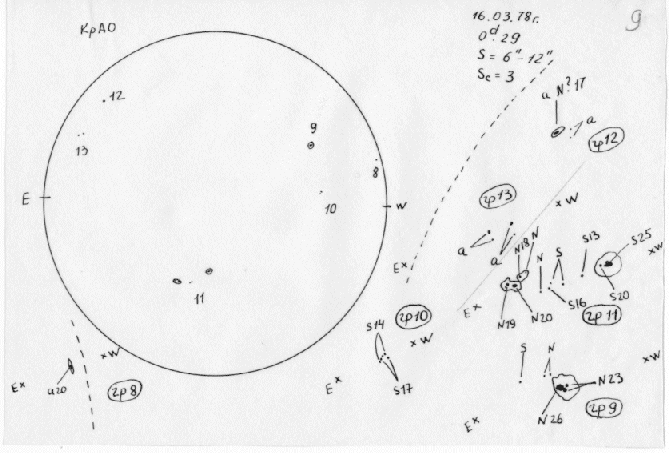 КрАО
16.03.78г.
0ᵈ.29
S = 6"-12"
Sc = 3
9
12
13
9
8
10
11
E
W
a N?17
a
гр12
гр13
a
a
N18 N
N19
N20
×W
E×
N
S
S16
S13
S25
S20
гр11
×W
E×
гр10
S14
S17
×W
E×
гр8
u20
×W
E×
S
N
N23
N26
гр9
×W
E×